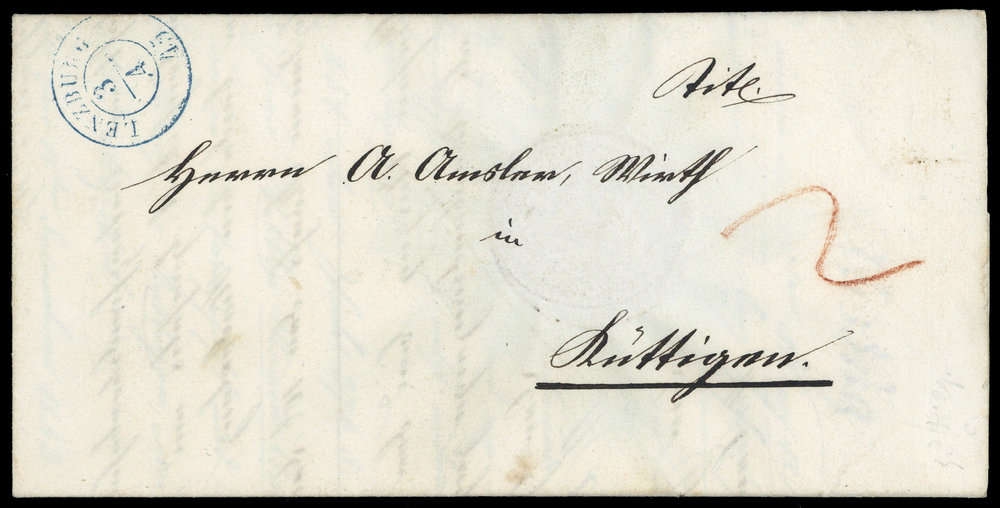 LENZBURG
3/4
Titl.
Herrn A. Amsler, Wirth
2
in
Küttigen.